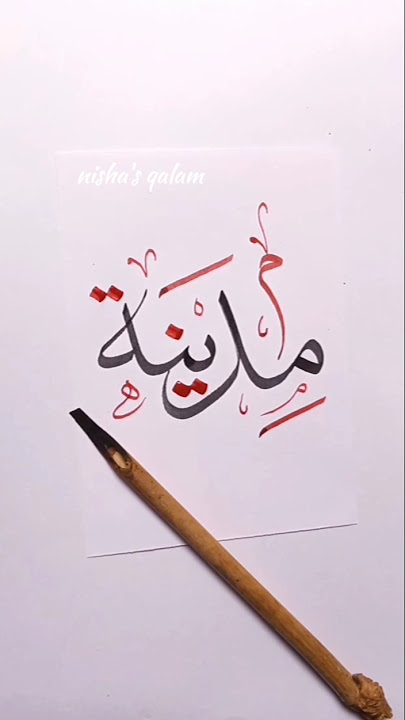 nisha's qalam
مدِينَة